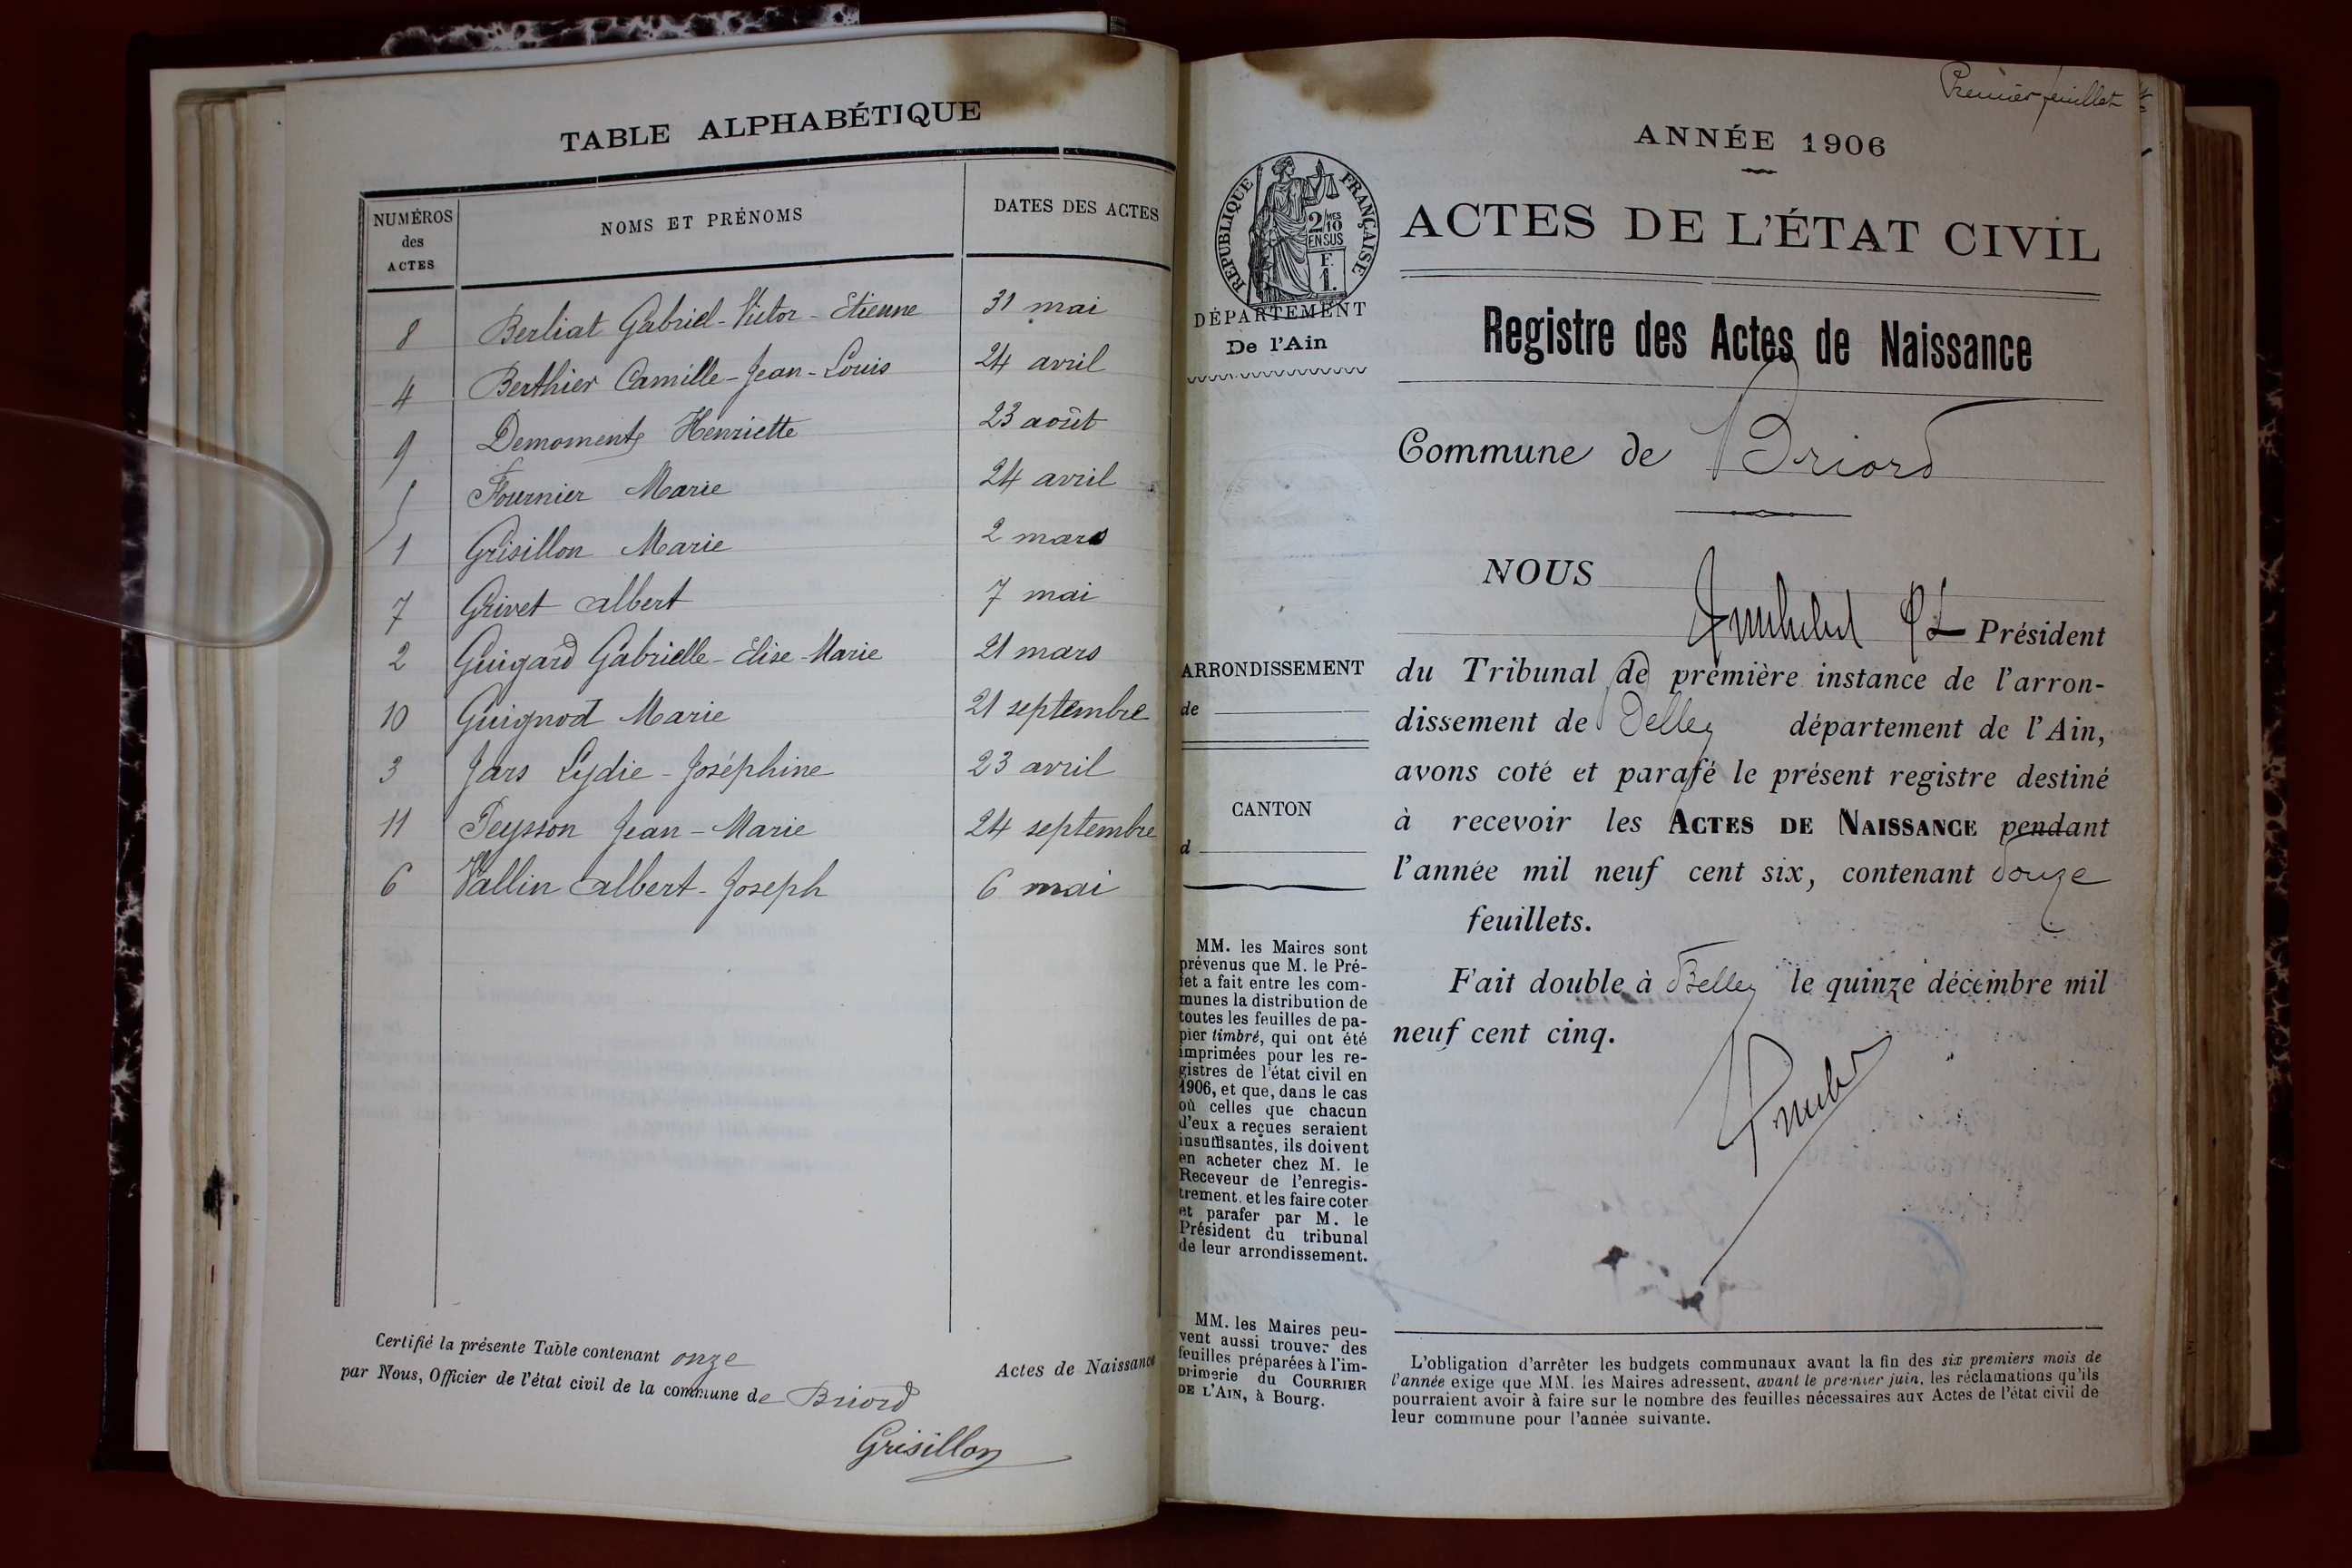 TABLE ALPHABÉTIQUE
NUMÉROS des ACTES
NOMS ET PRÉNOMS
DATES DES ACTES
8 Berliat Gabriel-Victor-Etienne 31 mai
4 Berthier Camille-Jean-Louis 24 avril
9 Demoment Henriette 23 août
5 Fournier Marie 24 avril
1 Grisillon Marie 2 mars
7 Grivet Albert 7 mai
2 Guigard Gabrielle-Elise-Marie 21 mars
10 Guignod Marie 21 septembre
3 Jars Lydie-Joséphine 23 avril
11 Peysson Jean-Marie 24 septembre
6 Vallin Albert-Joseph 6 mai
Certifié la présente Table contenant onze Actes de Naissance
par Nous, Officier de l'état civil de la commune de Briord
Grisillon
Premier feuillet
ANNÉE 1906
RÉPUBLIQUE FRANÇAISE
2/10 MES
EN SUS
F.
1.
ACTES DE L'ÉTAT CIVIL
DÉPARTEMENT
De l'Ain
Registre des Actes de Naissance
Commune de Briord
NOUS
Président
ARRONDISSEMENT
de
CANTON
d
du Tribunal de première instance de l'arron-
dissement de Belley département de l'Ain,
avons coté et parafé le présent registre destiné
à recevoir les ACTES DE NAISSANCE pendant
l'année mil neuf cent six, contenant douze
feuillets.
Fait double à Belley le quinze décembre mil
neuf cent cinq.
MM. les Maires sont
prévenus que M. le Pré-
fet a fait entre les com-
munes la distribution de
toutes les feuilles de pa-
pier timbré, qui ont été
imprimées pour les re-
gistres de l'état civil en
1906, et que, dans le cas
où celles que chacun
d'eux a reçues seraient
insuffisantes, ils doivent
en acheter chez M. le
Receveur de l'enregis-
trement, et les faire coter
et parafer par M. le
Président du tribunal
de leur arrondissement.
MM. les Maires peu-
vent aussi trouver des
feuilles préparées à l'im-
primerie du COURRIER
DE L'AIN, à Bourg.
L'obligation d'arrêter les budgets communaux avant la fin des six premiers mois de
l'année exige que MM. les Maires adressent, avant le premier juin, les réclamations qu'ils
pourraient avoir à faire sur le nombre des feuilles nécessaires aux Actes de l'état civil de
leur commune pour l'année suivante.